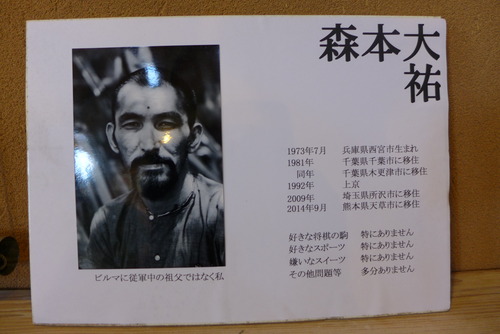 森本大
祐
1973年7月 兵庫県西宮市生まれ
1981年 千葉県千葉市に移住
同年 千葉県木更津市に移住
1992年 上京
2009年 埼玉県所沢市に移住
2014年9月 熊本県天草市に移住
好きな将棋の駒 特にありません
好きなスポーツ 特にありません
嫌いなスイーツ 特にありません
その他問題等 多分ありません
ビルマに従軍中の祖父ではなく私